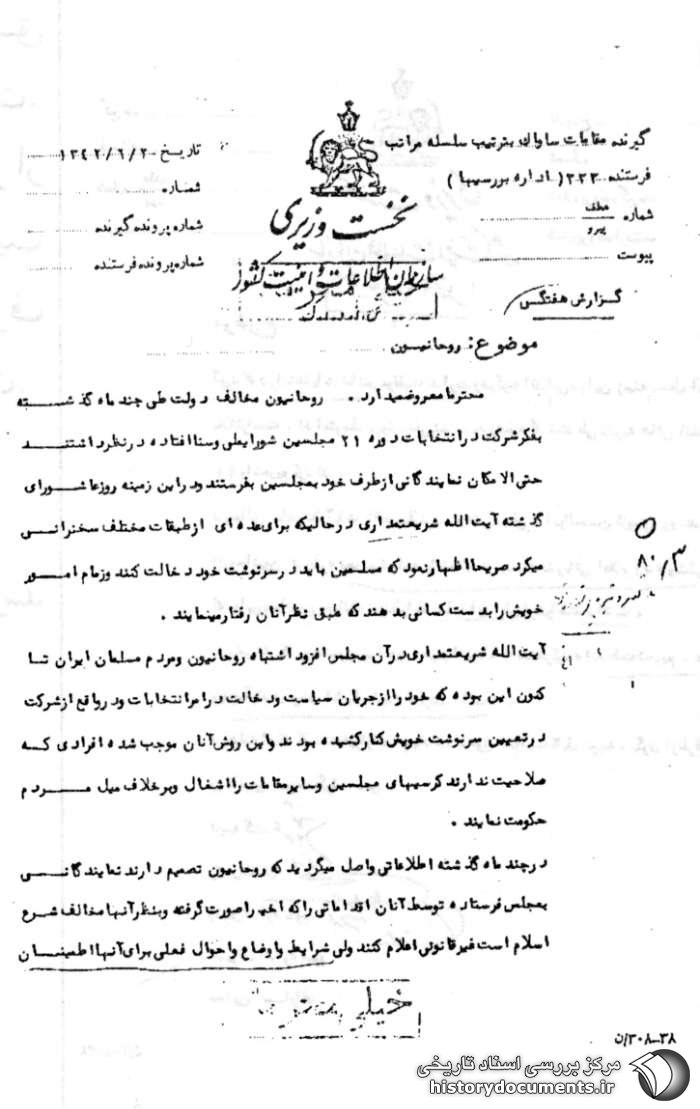 گیرنده مقامات ساواک بترتیب سلسله مراتب
فرستنده ۳۲۲ (اداره بررسیها)
شماره عطف پیرو
پیوست
تاریخ ۱۳۴۲/۶/۲۰
شماره
شماره پرونده گیرنده
شماره پرونده فرستنده
نخست وزیری
سازمان اطلاعات و امنیت کشور
گزارش هفتگی
موضوع: روحانیون
محترما معروضمیدارد. روحانیون مخالف دولت طی چند ماه گذشته
بفکر شرکت در انتخابات دوره ۲۱ مجلسین شورایملی و سنا افتاده در نظر داشتند
حتی الامکان نمایندگانی از طرف خود بمجلسین بفرستند و در این زمینه روز عاشورای
گذشته آیت الله شریعتمداری در حالیکه برای عده ای از طبقات مختلف سخنرانی
میکرد صریحا اظهار نمود که مسلمین باید در سرنوشت خود دخالت کنند و زمام امور
خویش را بدست کسانی بدهند که طبق نظر آنان رفتار مینمایند.
آیت الله شریعتمداری در آن مجلس افزود اشتباه روحانیون و مردم مسلمان ایران تا
کنون این بوده که خود را از جریان سیاست و دخالت در امر انتخابات و در واقع از شرکت
در تعیین سرنوشت خویش کنار کشیده بودند و این روش آنان موجب شده افرادی که
صلاحیت ندارند کرسیهای مجلسین و سایر مقامات را اشغال و بر خلاف میل مردم
حکومت نمایند.
در چند ماه گذشته اطلاعاتی واصل میگردید که روحانیون تصمیم دارند نمایندگانی
بمجلس فرستاده توسط آنان اقداماتی را که اخیرا صورت گرفته و بنظر آنها مخالف شرع
اسلام است غیر قانونی اعلام کنند ولی شرایط و اوضاع و احوال فعلی برای آنها اطمینان
خیلی
۳۸-۳۰۸/ن
مرکز بررسی اسناد تاریخی
historydocuments.ir